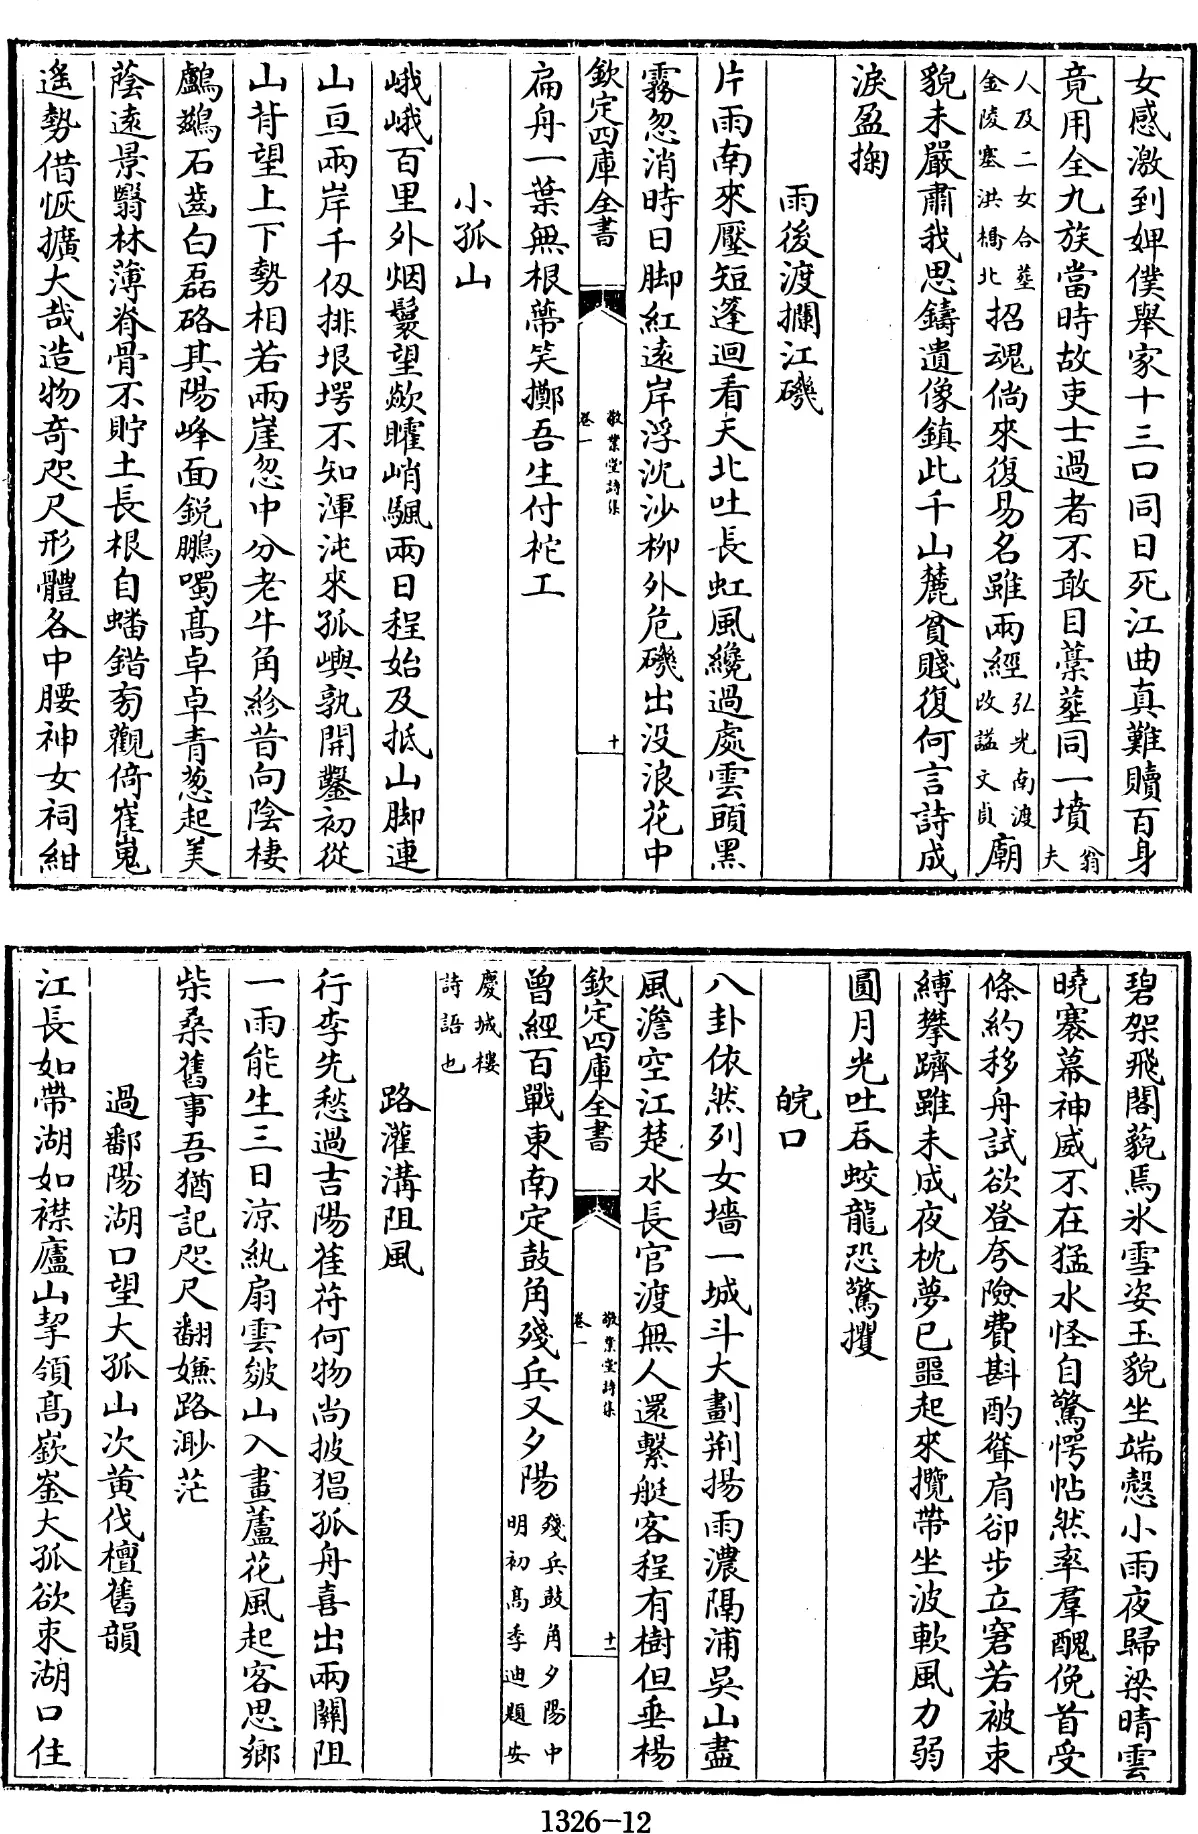 女感激到婢僕舉家十三口同日死江曲真難贖百身
竟用全九族當時故吏士過者不敢目藁塟同一墳翁夫
人及二女合塟金陵塞洪橋北招魂倘來復易名雖兩經弘光南渡改諡文貞廟
貌未嚴肅我思鑄遺像鎮此千山麓貧賤復何言詩成
淚盈掬
雨後渡攔江磯
片雨南來壓短蓬迴看天北吐長虹風纔過處雲頭黑
霧忽消時日脚紅遠岸浮沈沙柳外危磯出没浪花中
欽定四庫全書
敬業堂詩集
卷一
十
扁舟一葉無根蔕笑擲吾生付柁工
小孤山
峨峨百里外烟鬟望歘矐峭颿兩日程始及抵山脚連
山亘兩岸千仭排垠堮不知渾沌來孤嶼孰開鑿初從
山背望上下勢相若兩崖忽中分老牛角紾昔向陰棲
鸕鷀石齒白磊砢其陽峰面鋭鵰噣髙卓卓青葱起美
蔭遠景翳林薄脊骨不貯土長根自蟠錯旁觀倚崔嵬
遙勢借恢擴大哉造物奇咫尺形體各中腰神女祠紺
碧架飛閣藐焉氷雪姿玉貌坐端慤小雨夜歸梁晴雲
曉褰幕神威不在猛水怪自驚愕帖然率羣醜俛首受
條約移舟試欲登夸險費斟酌聳肩卻步立窘若被束
縛攀躋雖未成夜枕夢已噩起來攬帶坐波軟風力弱
圓月光吐吞蛟龍恐驚攫
皖口
八卦依然列女墻一城斗大劃荆揚雨濃隔浦吳山盡
風澹空江楚水長官渡無人還繫艇客程有樹但垂楊
欽定四庫全書
敬業堂詩集
卷一
十一
曾經百戰東南定鼓角殘兵又夕陽殘兵鼓角夕陽中明初髙季迪題安
慶城樓詩語也
路灌溝阻風
行李先愁過吉陽萑苻何物尚披猖孤舟喜出兩關阻
一雨能生三日涼紈扇雲皴山入畫蘆花風起客思鄉
柴桑舊事吾猶記咫尺翻嫌路渺茫
過鄱陽湖口望大孤山次黃伐檀舊韻
江長如帶湖如襟廬山挈領髙嶔崟大孤欲束湖口住
1326-12